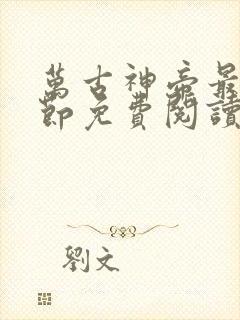 萬古神帝最
節免費閱讀
劉文